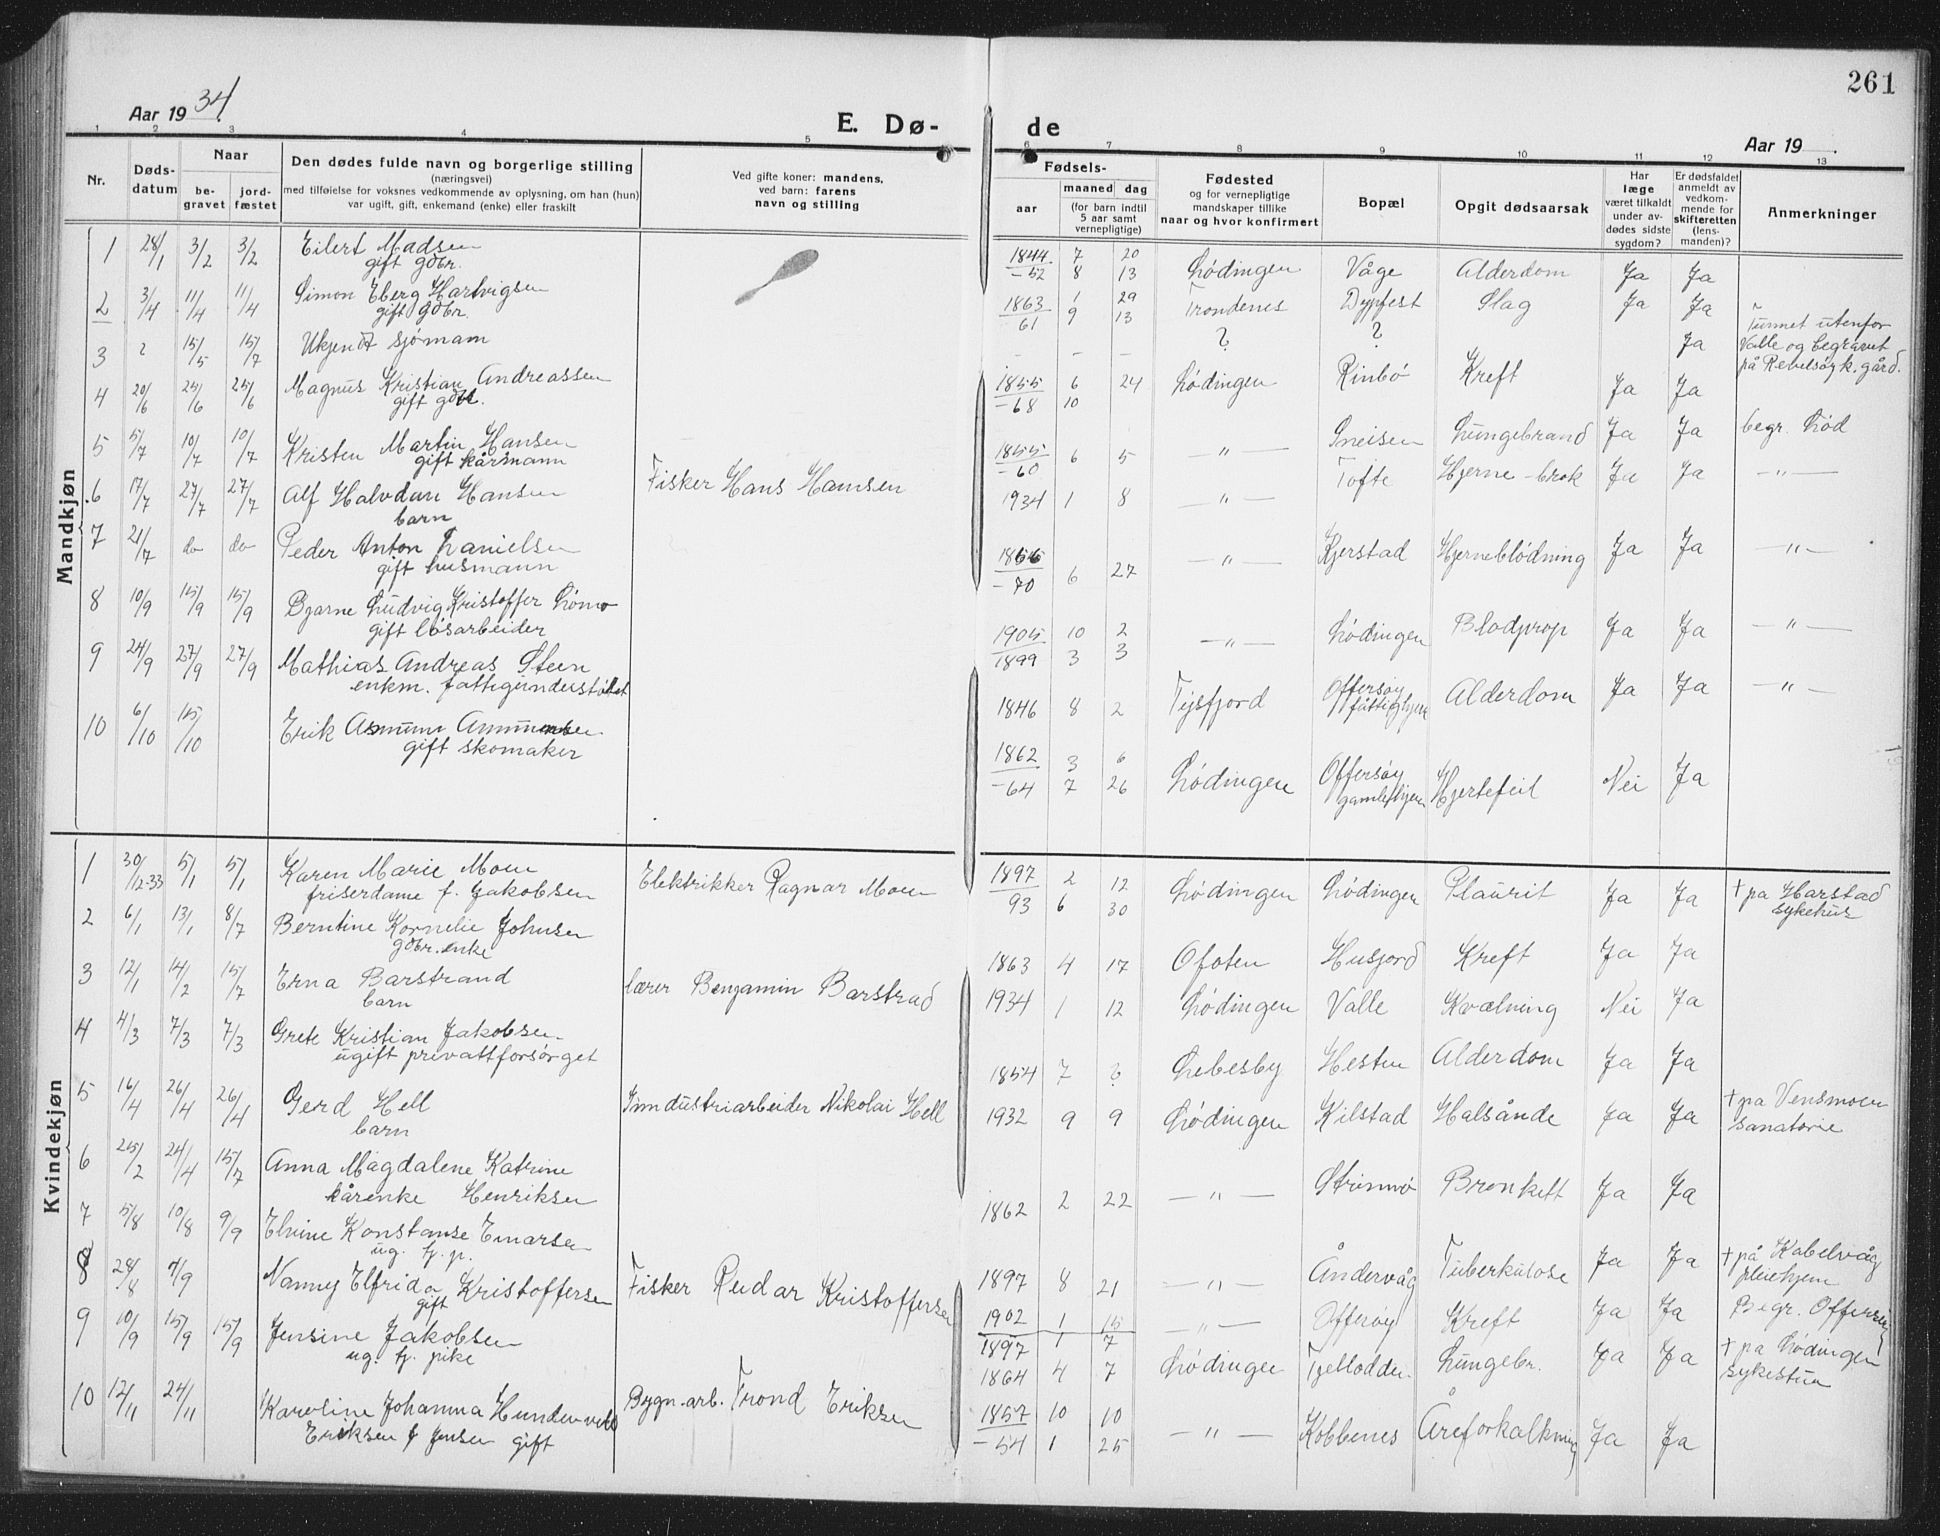 261
Aar 1934
E. Dø-
de
Aar 19
1 2 3 4 5 6 7 8 9 10 11 12 13
Nr.
Døds-
datum
Naar
be-
gravet
jord-
fæstet
Den dødes fulde navn og borgerlige stilling
(næringsvei)
med tilføielse for voksnes vedkommende av oplysning, om han (hun)
var ugift, gift, enkemand (enke) eller fraskilt
Ved gifte koner: mandens,
ved barn: farens
navn og stilling
Fødsels-
aar
maaned dag
(for barn indtil
5 aar samt
vernepligtige)
Fødested
og for vernepligtige
mandskaper tillike
naar og hvor konfirmert
Bopæl
Opgit dødsaarsak
Har
læge
været tilkaldt
under av-
dødes sidste
sygdom?
Er dødsfaldet
anmeldt av
vedkom-
mende for
skifteretten
(lens-
manden)?
Anmerkninger
Mandkjøn
1 28/1 3/2 3/2 Eilert Madsen 1844 7 20 Lødingen Våge Alderdom Ja Ja
gift gdbr. -52 8 13
2 3/4 11/4 11/4 Simon Eberg Hartvigsen 1863 1 29 Trondenes Dypfest Slag Ja Ja
gift gdbr. -61 9 13
3 ? 15/5 15/7 Ukjendt sjømann - - - ? ? Ja Funnet utenfor
Valle og begravet
på Revelsøy k.gård.
4 20/6 25/6 25/6 Magnus Kristian Andreassen 1855 6 24 Lødingen Rinbø Kreft Ja Ja
gift gdbr. -68 10
5 5/7 10/7 10/7 Kristen Martin Hansen 1855 6 5 -"- Sneisen Lungebrand Ja Ja begr. Lød
gift kårmann -60
6 17/7 27/7 27/7 Alf Halvdan Hansen Fisker Hans Hansen 1934 1 8 -"- Tofte Hjerne-brok Ja Ja -"-
barn
7 21/7 do do Peder Anton Danielsen 1856 6 27 -"- Kjerstad Hjerneblødning Ja Ja -"-
gift husmann -70
8 10/9 15/9 15/9 Bjarne Ludvig Kristoffer Lømo 1905 10 2 -"- Lødingen Blodprop Ja Ja -"-
gift løsarbeider 1899 3 3
9 24/9 27/9 27/9 Mathias Andreas Steen 1846 8 2 Tysfjord Offersøy Alderdom Ja Ja -"-
enkm. fattigunderstøttet fattighjem
10 6/10 15/10 Erik Asmunn Ammundsen 1862 3 6 Lødingen Offersøy Hjertefeil Nei Ja
gift skomaker -64 7 26 gamlehjem
Kvindekjøn
1 30/12-33 5/1 5/1 Karen Marie Moen Elektrikker Ragnar Moen 1897 2 12 Lødingen Lødingen Plaurit Ja Ja + på Harstad
friserdame f. Jakobsen 93 6 30 sykehus
2 6/1 13/1 8/7 Berntine Kornelie Johnsen 1863 4 17 Ofoten Husjord Kreft Ja Ja
gdbr. enke
3 12/1 14/2 15/7 Erna Barstrand lærer Benjamin Barstrad 1934 1 12 Lødingen Valle Kvælning Nei Ja
barn
4 4/3 7/3 7/3 Grete Kristian Jakobsen 1854 7 ? Lebesby Hesten Alderdom Ja Ja
ugift privattforsørget
5 16/4 26/4 26/4 Gerd Hell Inndustriarbeider Nikolai Hell 1932 9 9 Lødingen Kilstad Halsånde Ja Ja + på Vensmoen
barn sanatorie
6 25/2 24/4 15/7 Anna Magdalene Katrine 1862 2 22 -"- Strømmø Bronkitt Ja Ja
kårenke Henriksen
7 5/8 10/8 9/9 Elvine Konstanse Einarsen 1897 8 21 -"- Åndervåg Tuberkulose Ja Ja + på Kabelvåg
ug. tj. p. pleiehjem
8 28/8 7/9 Nanny Elfrida Kristoffersen Fisker Reidar Kristoffersen 1902 1 15 -"- Offersøy Kreft Ja Ja Begr. Offersøy
gift 1897 1 7
9 10/9 15/9 15/9 Jensine Jakobsen 1864 4 7 Lødingen Tjellodden Lungebr. Ja Ja + på Lødingen
ug. tj. pike sykestua
10 12/11 24/11 Karoline Johanna Bygn.-arb. Trond Eriksen 1857 10 10 -"- Kobbenes Åreforkalkning Ja Ja
Eriksen f Jensen gift -54 1 25